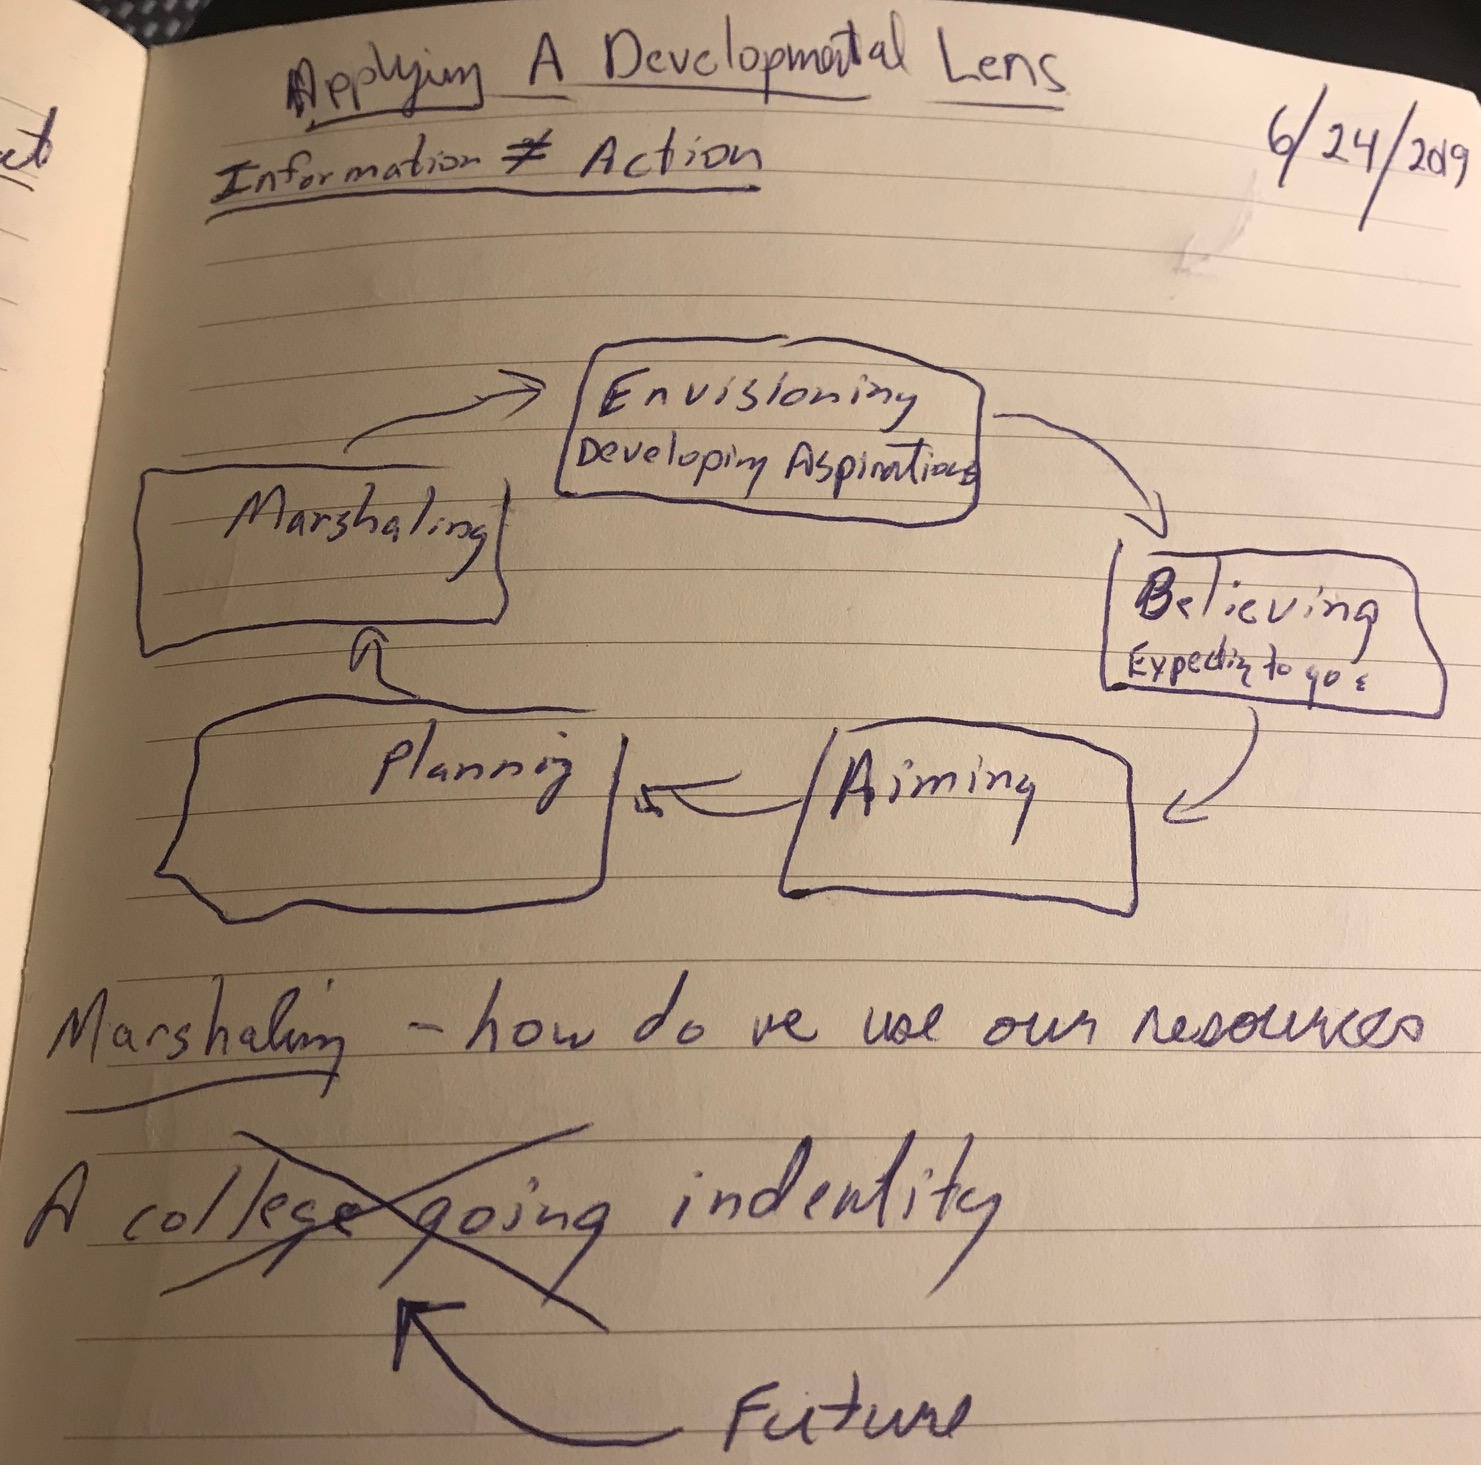 Applying A Developmental Lens
6/24/2019
Information ≠ Action
Envisioning
Developing Aspirations
Marshaling
Believing
Expecting to go
Planning
Aiming
Marshaling - how do we use our resources
A college going indentity
Future